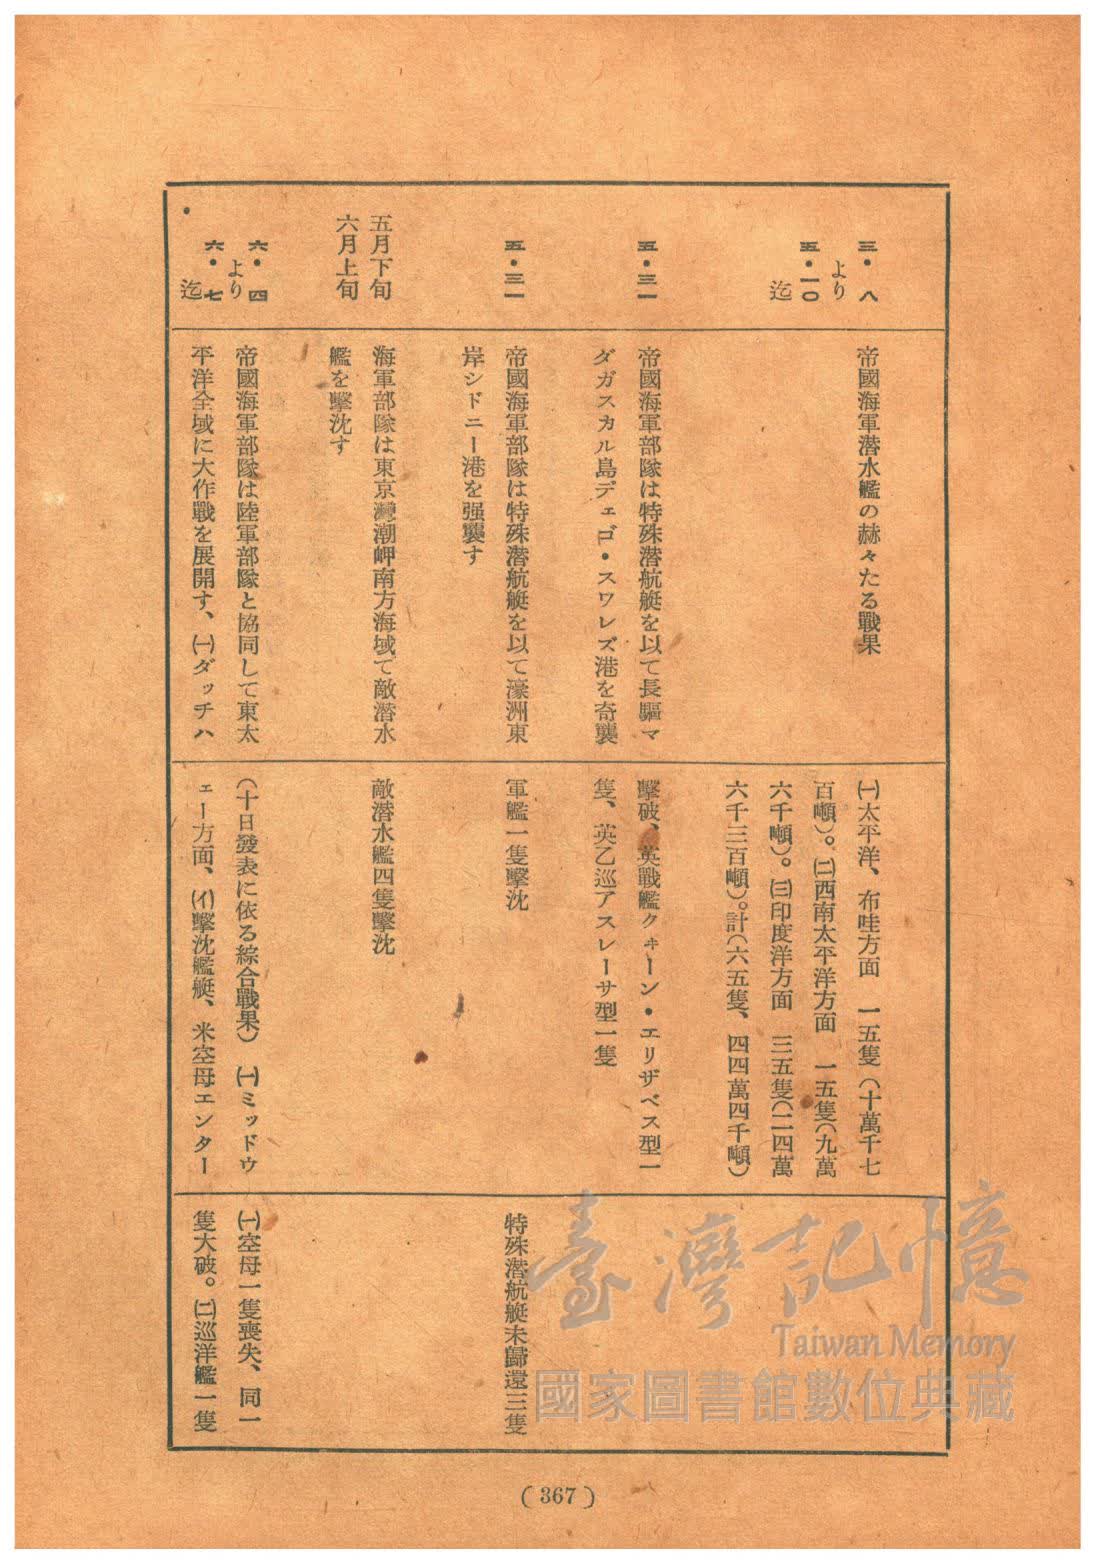 三・八
より
五・一〇
迄
帝國海軍潛水艦の赫々たる戰果
㈠太平洋、布哇方面　一五隻（十萬千七
百噸）。㈡西南太平洋方面　一五隻（九萬
六千噸）。㈢印度洋方面　三五隻（二四萬
六千三百噸）。計（六五隻、四四萬四千噸）
五・三一
帝國海軍部隊は特殊潛航艇を以て長驅マ
ダガスカル島デェゴ・スワレズ港を奇襲
擊破、英戰艦クヰーン・エリザベス型一
隻、英乙巡アスレーサ型一隻
五・三一
帝國海軍部隊は特殊潛航艇を以て濠洲東
岸シドニー港を强襲す
軍艦一隻擊沈
特殊潛航艇未歸還三隻
五月下旬
六月上旬
海軍部隊は東京灣潮岬南方海域で敵潛水
艦を擊沈す
敵潛水艦四隻擊沈
六・四
より
六・七
迄
帝國海軍部隊は陸軍部隊と協同して東太
平洋全域に大作戰を展開す、㈠ダッチハ
（十日發表に依る綜合戰果）　㈠ミッドウ
ェー方面、㈑擊沈艦艇、米空母エンター
㈠空母一隻喪失、同一
隻大破。㈡巡洋艦一隻
( 367 )
臺灣記憶
Taiwan Memory
國家圖書館數位典藏